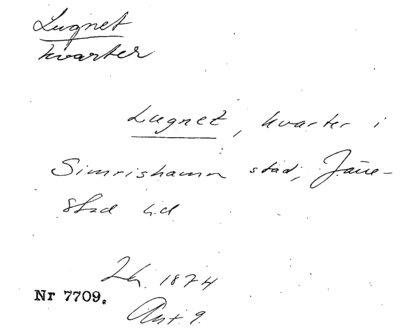 Lugnet
kvarter
Lugnet, kvarter i
Simrishamn stad, Järre-
stad hd
Lh. 1874
Nr 7709.
Ant 9.